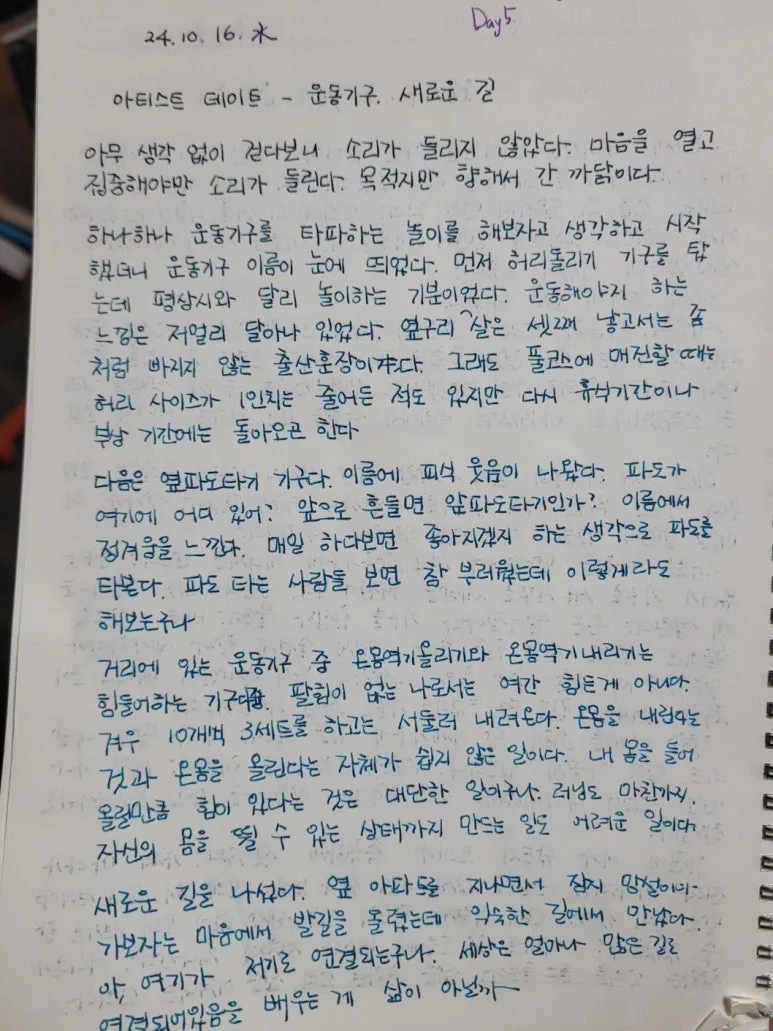 24.10.16.水
Day5.
아티스트 데이트 - 운동기구. 새로운 길
아무 생각 없이 걷다보니 소리가 들리지 않았다. 마음을 열고
집중해야만 소리가 들린다. 목적지만 향해서 간 까닭이다.
하나하나 운동기구를 타파하는 놀이를 해보자고 생각하고 시작
했더니 운동기구 이름이 눈에 띄었다. 먼저 허리돌리기 기구를 탔
는데 평상시와 달리 놀이하는 기분이었다. 운동해야지 하는
느낌은 저멀리 달아나 있었다. 옆구리 살은 셋째 낳고서는 좀
처럼 빠지지 않는 출산훈장이 다. 그래도 풀코스에 매진할 때는
허리 사이즈가 1인치는 줄어든 적도 있지만 다시 휴식기간이나
부상 기간에는 돌아오곤 한다
다음은 옆파도타기 기구다. 이름에 피식 웃음이 나왔다. 파도가
여기에 어디 있어? 앞으로 흔들면 앞파도타기인가? 이름에서
정겨움을 느낀다. 매일 하다보면 좋아지겠지 하는 생각으로 파도를
타본다. 파도 타는 사람들 보면 참 부러웠는데 이렇게라도
해보는구나
거리에 있는 운동기구 중 온몸역기올리기와 온몸역기내리기는
힘들어하는 기구다. 팔힘이 없는 나로서는 여간 힘든게 아니다.
겨우 10개씩 3세트를 하고는 서둘러 내려온다. 온몸을 내린다는
것과 온몸을 올린다는 자체가 쉽지 않은 일이다. 내 몸을 들어
올릴만큼 힘이 있다는 것은 대단한 일이구나. 러닝도 마찬가지.
자신의 몸을 뛸 수 있는 상태까지 만드는 일도 어려운 일이다
새로운 길을 나섰다. 옆 아파트를 지나면서 잠시 망설이다
가보자는 마음에서 발길을 돌렸는데 익숙한 길에서 만났다.
아, 여기가 저기로 연결되는구나. 세상은 얼마나 많은 길로
연결되어있음을 배우는 게 삶이 아닐까